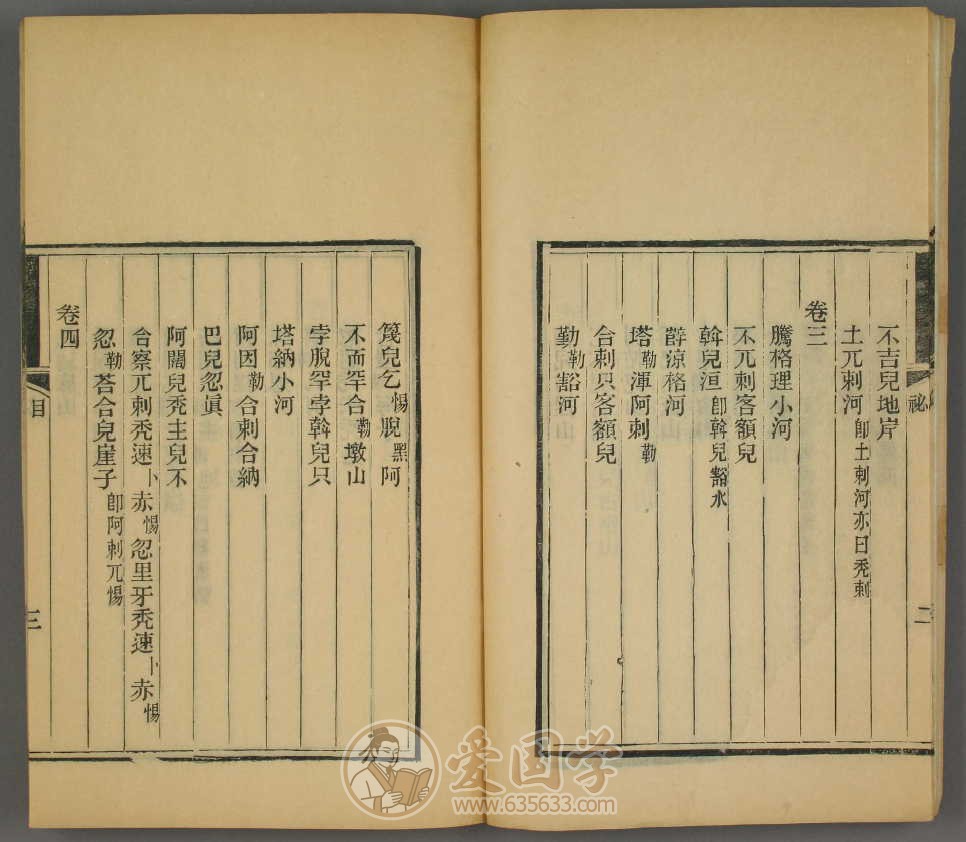 不吉兒地岸
土兀剌河卽土剌河亦曰禿剌
卷三
騰格理小河
不兀剌客額兒
斡兒洹卽斡兒豁水
薛涼格河
塔勒渾阿剌勒
合剌只客額兒
勤勒豁河
祕
二
篾兒乞惕脫黑阿
不而罕合勒墩山
孛脫罕孛斡兒只
塔納小河
阿因勒合剌合納
巴兒忽眞
阿闊兒禿主兒不
合察兀剌禿速卜赤惕忽里牙禿速卜赤惕
忽勒荅合兒崖子卽阿剌兀惕
卷四
目
三
爱国学
www.635633.com